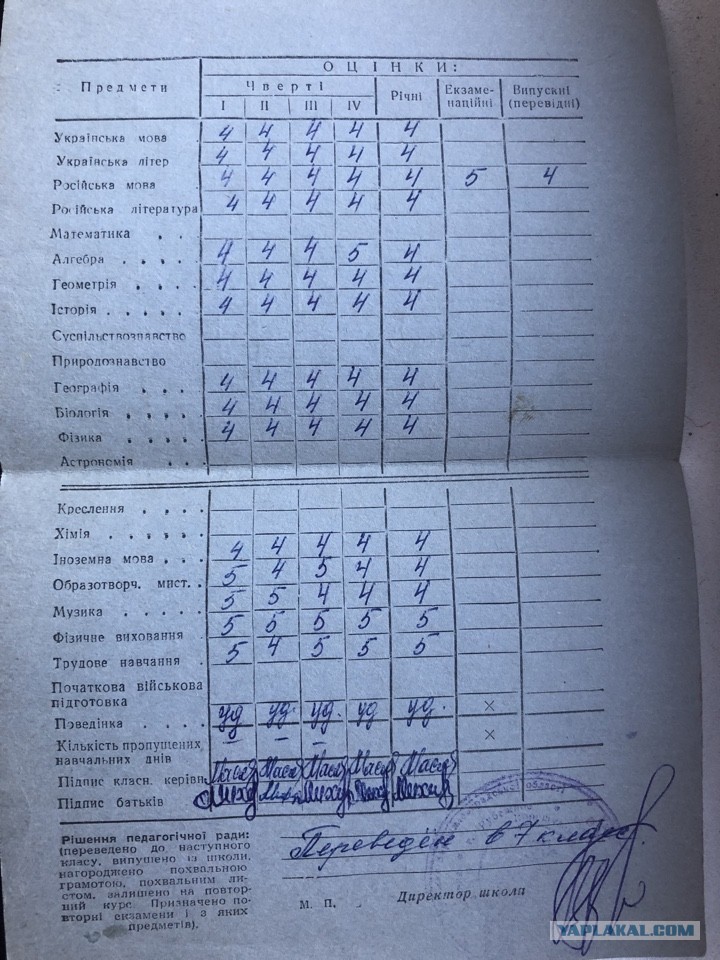 ОЦІНКИ:
Предмети Чверті Річні Екзаме-національні Випускні (перевідні)
I II III IV
Українська мова 4 4 4 4 4
Українська літер 4 4 4 4 4
Російська мова 4 4 4 4 4 5 4
Російська література 4 4 4 4 4
Математика . .
Алгебра . . . . 4 4 4 5 4
Геометрія . . . . 4 4 4 4 4
Історія . . . . . 4 4 4 4 4
Суспільствознавство
Природознавство
Географія . . . 4 4 4 4 4
Біологія . . . . 4 4 4 4 4
Фізика . . . . 4 4 4 4 4
Астрономія . . .
Креслення . . . .
Хімія . . . . . .
Іноземна мова . . . 4 4 4 4 4
Образотворч. мист. . 5 4 5 4 4
Музика . . . . 5 5 4 4 4
Фізичне виховання 5 5 5 5 5
Трудове навчання . 5 4 5 5 5
Початкова військова
підготовка
Поведінка . . . . уд уд. уд. уд уд. ×
Кількість пропущених — — — ×
навчальних днів
Підпис класн. керівн
Підпис батьків
Рішення педагогічної ради:
(переведено до наступного
класу, випущено із школи,
нагороджено похвальною
грамотою, похвальним ли-
стом, залишено на повтор-
ний курс. Призначено по-
вторні екзамени і з яких
предметів).
Переведён в 7 класс.
М. П. Директор школи
YAPLAKAL.COM